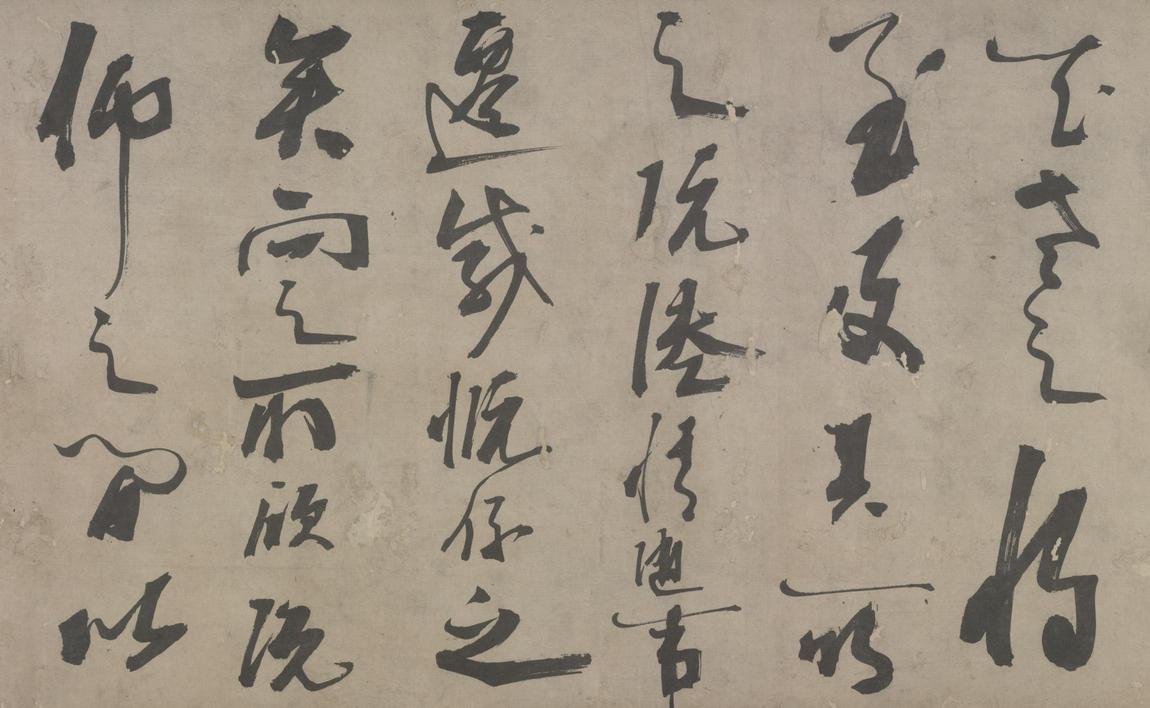 知老之將
至及其所
之既倦情隨事
遷感慨係之
矣向之所欣俛
仰之間以